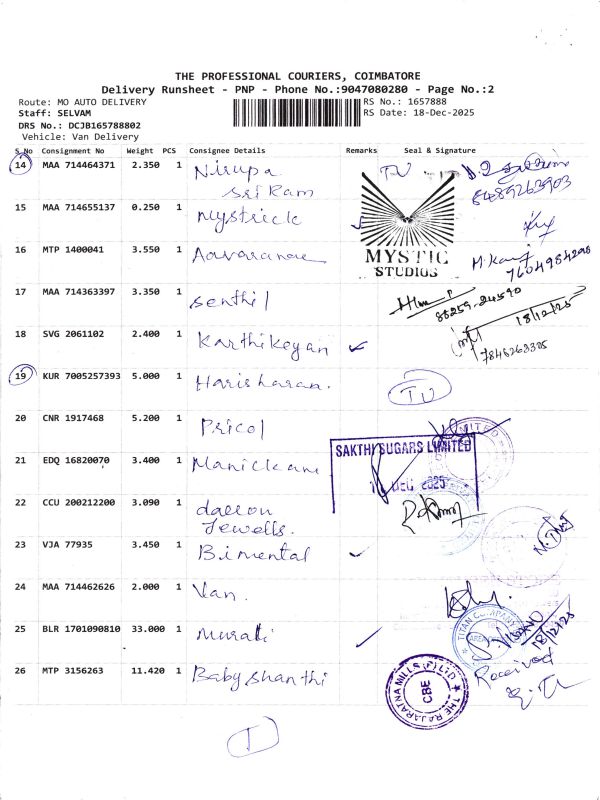 THE PROFESSIONAL COURIERS, COIMBATORE
Delivery Runsheet - PNP - Phone No.:9047080280 - Page No.:2
Route: MO AUTO DELIVERY
RS No.: 1657888
Staff: SELVAM
RS Date: 18-Dec-2025
DRS No.: DCJB165788802
Vehicle: Van Delivery
S.No Consignment No Weight PCS Consignee Details Remarks Seal & Signature
14 MAA 714464371 2.350 1 Nirupa
Sri Ram
TU
15 MAA 714655137 0.250 1 Mystick
MYSTIC
STUDIOS
16 MTP 1400041 3.550 1
7604984298
17 MAA 714363397 3.350 1 Senthil
88259-24590
18/12/25
18 SVG 2061102 2.400 1 Karthikeyan
19 KUR 7005257393 5.000 1 Hariharan.
TU
20 CNR 1917468 5.200 1 Pricol
SAKTHI SUGARS LIMITED
DEC 2025
21 EDQ 16820070 3.400 1 Manickam
22 CCU 200212200 3.090 1
Jewells.
23 VJA 77935 3.450 1 Bimental
24 MAA 714462626 2.000 1 Van.
25 BLR 1701090810 33.000 1 Murali
TITAN COMPANY
18/12/25
Received
26 MTP 3156263 11.420 1 Baby Shanthi
THE RAJARATNA MILLS (P) LTD
CBE